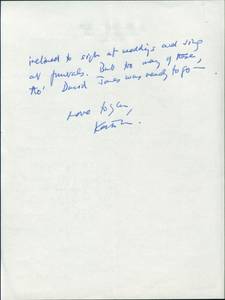 inclined to sigh at weddings and sing
at funerals. But too many of those,
tho' David Jones was ready to go —
Love to you,